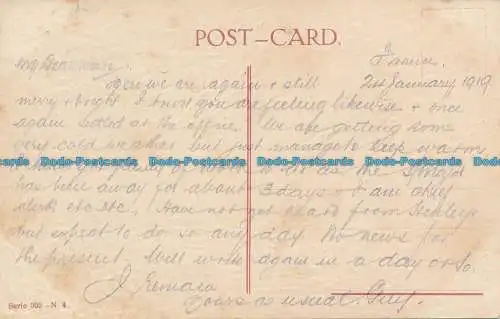 POST-CARD.
France
21st January 1919
My Dear
Here we are again & still
merry & bright I know you are feeling likewise & once
again settled at the office. We are getting some
very cold weather but just manage to keep warm
Postcards Todo-Postcards Todo-Postcards Todo-Postcards Todo-Postcards Todo-Postcards
plenty of work to do as the
has been away for about 3 days & I am chief
clerk etc etc. Have not yet heard from
but expect to do so any day. No news for
the present. Will write again in a day or so.
I remain
Yours as usual. Guy.
Serie 305 - N 4